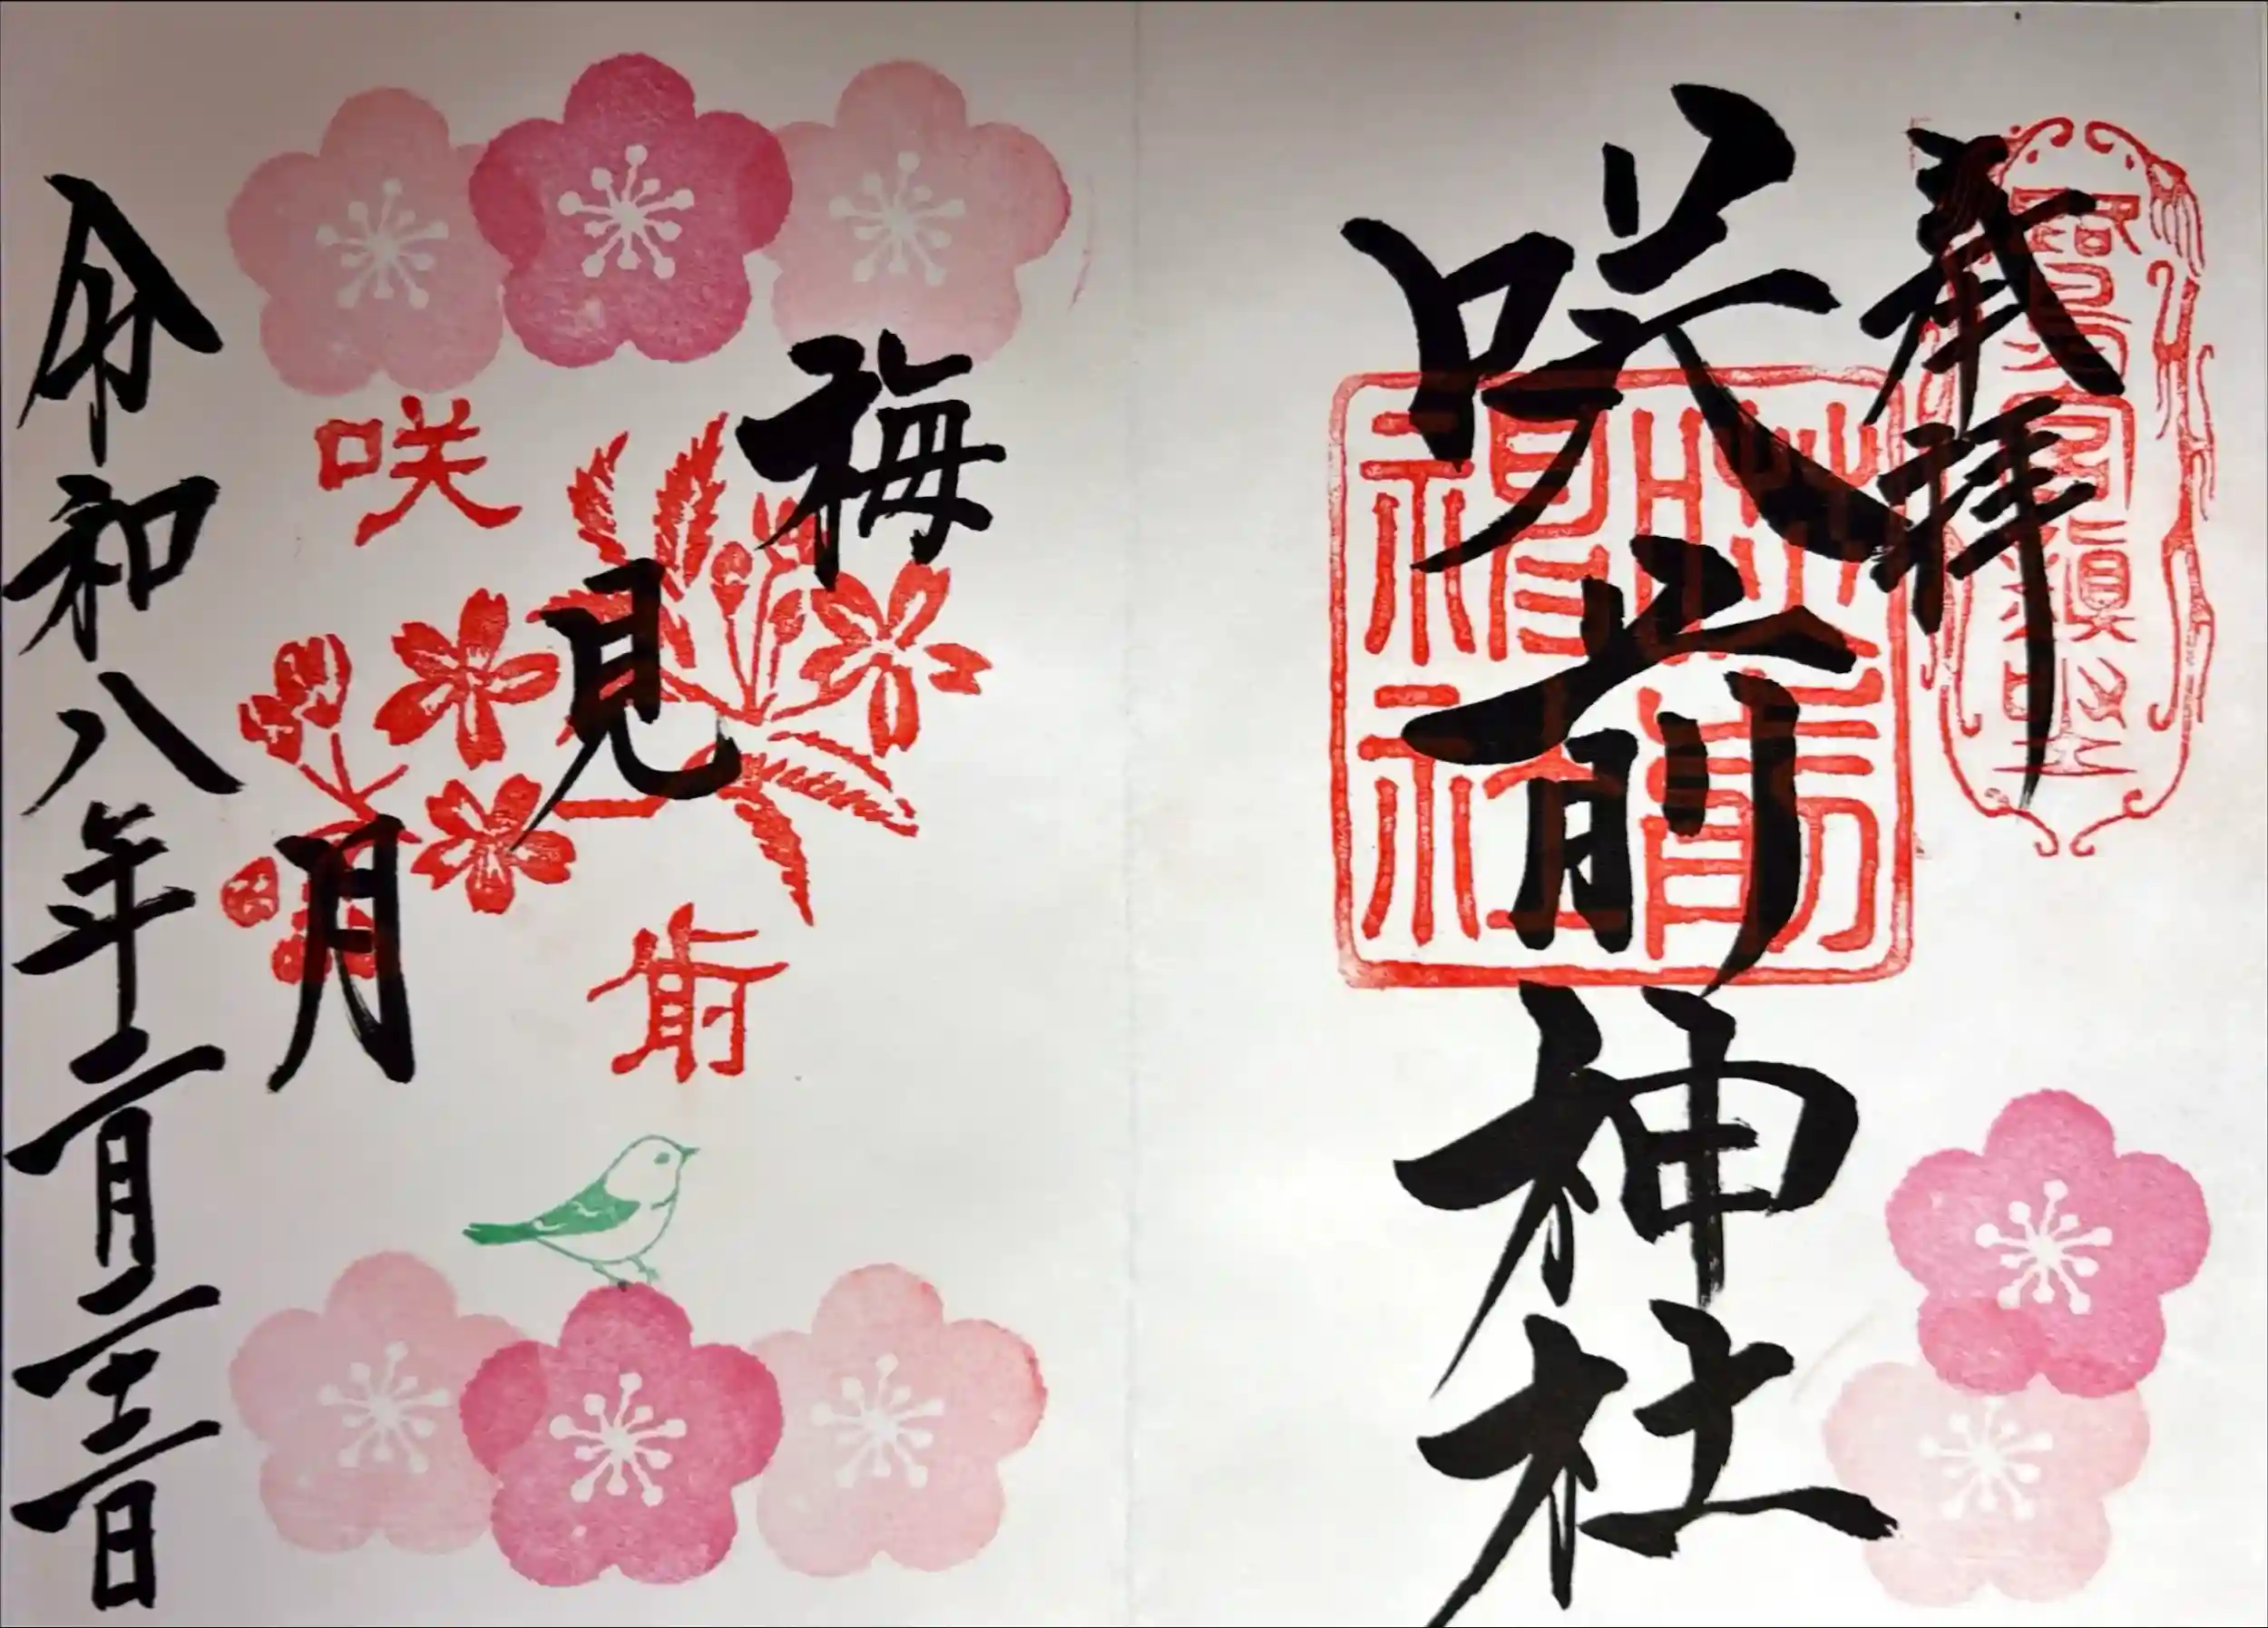 奉拝
咲前神社
梅見月
咲前
令和八年二月二十二日